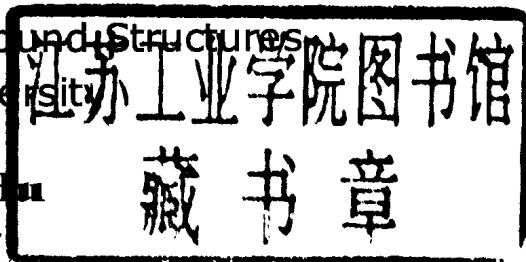 ound Structures
ersity
江苏工业学院图书馆
藏书章